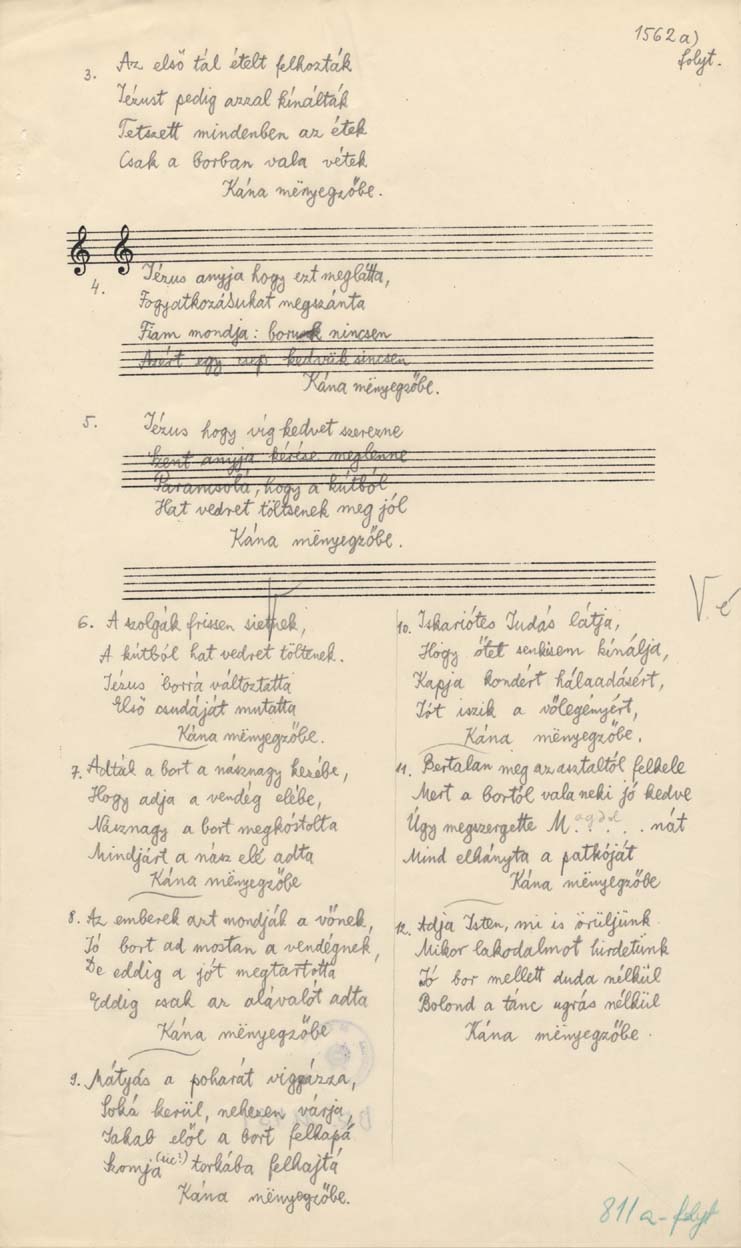 1562 a)
folyt.
3. Az első tál ételt felhozták
Jézust pedig azzal kínálták
Tetszett mindenben az étek
Csak a borban vala vétek
Kána mënyegzőbe.
4. Jézus anyja hogy ezt meglátta,
Fogyatkozásukat megszánta
Fiam mondja: boruk nincsen
Azért egy csep kedvük sincsen
Kána mënyegzőbe.
5. Jézus hogy víg kedvet szerezne
Szent anyja kérése meglenne
Parancsolá, hogy a kútból
Hat vedret töltsenek meg jól
Kána mënyegzőbe.
6. A szolgák frissen sietnek,
A kútból hat vedret töltenek.
Jézus borrá változtatta
Első csudáját mutatta
Kána mënyegzőbe.
7. Adtál a bort a násznagy kezébe,
Hogy adja a vendég elébe,
Násznagy a bort megkóstolta
Mindjárt a nász elé adta
Kána mënyegzőbe
8. Az emberek azt mondják a vőnek,
Jó bort ad mostan a vendégnek,
De eddig a jót megtartotta
Eddig csak az alávalót adta
Kána mënyegzőbe
9. Mátyás a poharát viggázza,
Soká kerül, nehezen várja,
Jakab elől a bort felkapá
Szomja (sic!) torkába felhajtá
Kána mënyegzőbe.
10. Iskariótes Judás látja,
Hogy őtet senkisem kínálja,
Kapja kondért hálaadásért,
Jót iszik a vőlegényért,
Kána mënyegzőbe.
11. Bertalan meg az asztaltól felkele
Mert a bortól vala neki jó kedve
Úgy megszergette M . ? . . . nát
Mind elhányta a patkóját
Kána mënyegzőbe
12. Adja Isten, mi is örüljünk
Mikor lakodalmot hirdetünk
Jó bor mellett duda nélkül
Bolond a tánc ugrás nélkül
Kána mënyegzőbe.
V. é
811 a - folyt